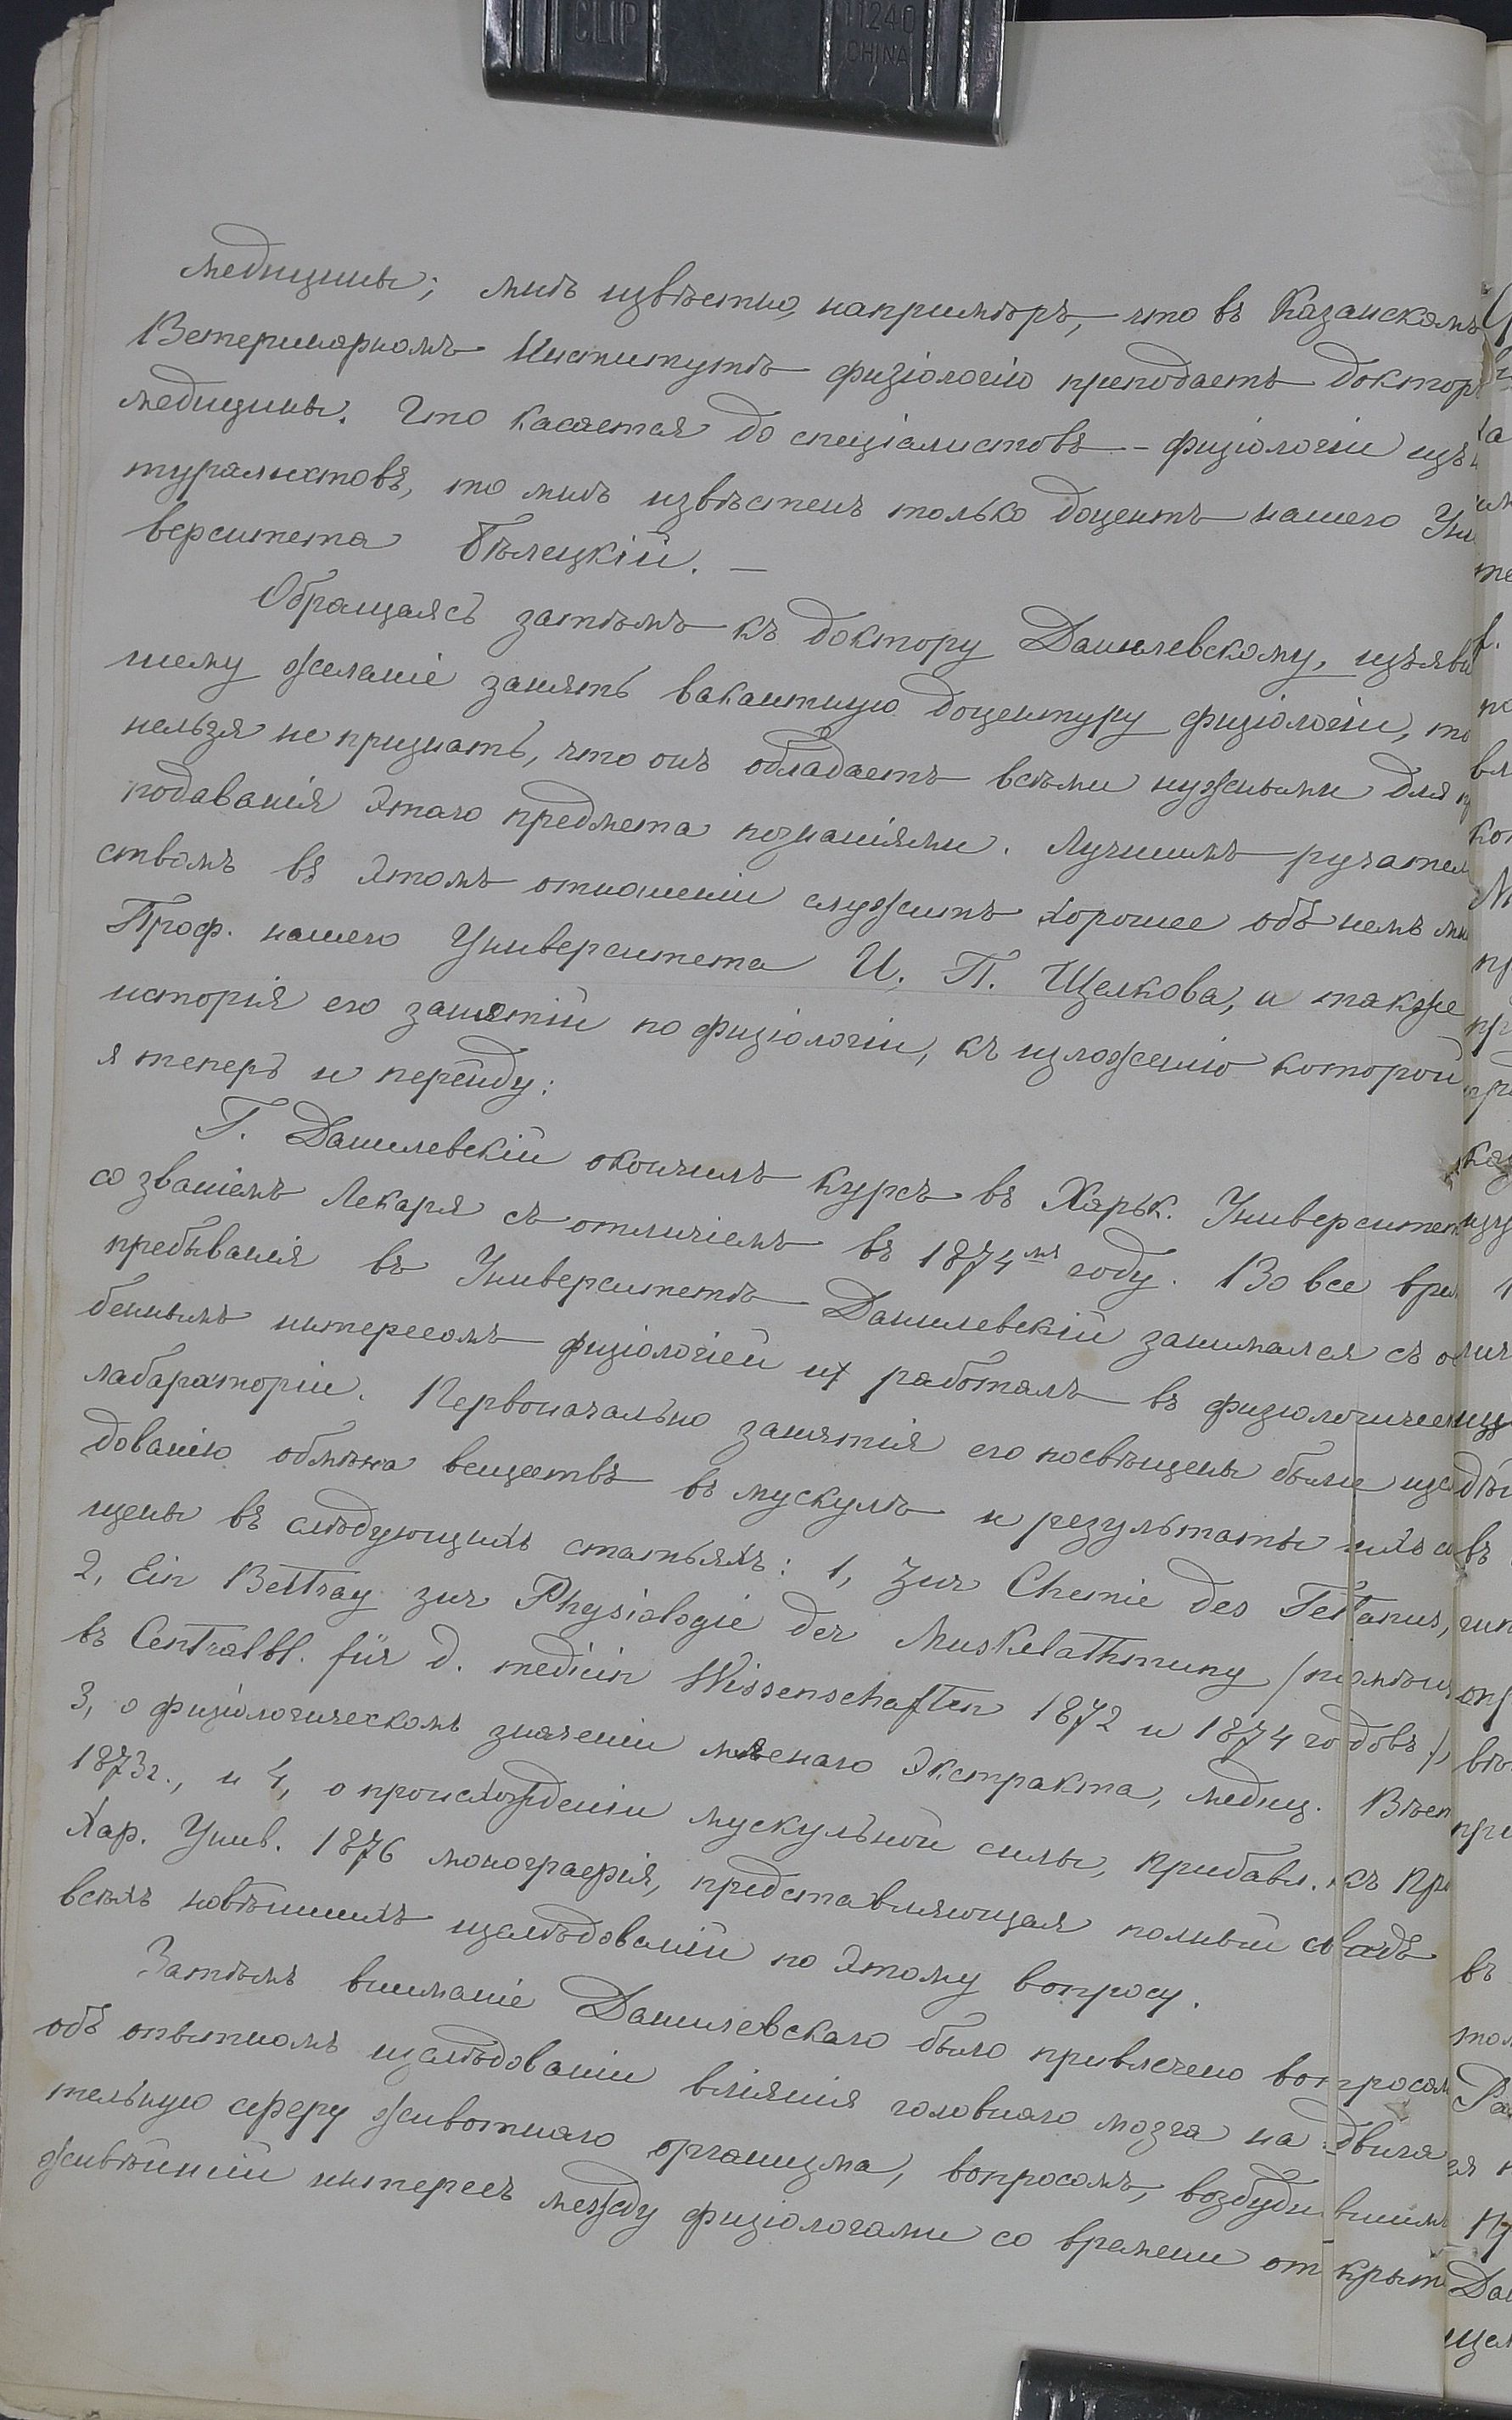 CLIP
11240
CHINA
медицины; мнѣ извѣстно, напримѣръ, что въ Казанскомъ
Ветеринарномъ Институтѣ физіологію преподаетъ докторъ
медицины. Что касается до спеціалистовъ-физіологіи изъ
туралистовъ, то мнѣ извѣстенъ только доцентъ нашего Уни
верситета Бѣлецкій. —
Обращаясь затѣмъ къ доктору Данилевскому, изъяви
шему желаніе занять вакантную доцентуру физіологіи, то
нельзя не признать, что онъ обладаетъ всѣми нужными для п
подаванія этого предмета познаніями. Лучшимъ ручатель
ствомъ въ этомъ отношеніи служитъ хорошее объ немъ мн
Проф. нашего Университета И. П. Щелкова, а также
исторія его занятій по физіологіи, къ изложенію которой
я теперь и перейду:
Г. Данилевскій окончилъ курсъ въ Харьк. Университет
со званіемъ Лекаря съ отличіемъ въ 1874мъ году. Во все врем
пребыванія въ Университетѣ Данилевскій занимался съ осо
беннымъ интересомъ физіологіей и работалъ въ физіологическ
лабараторіи. Первоначально занятія его посвѣщены были изслѣ
дованію обмѣна веществъ въ мускулѣ и результаты ихъ
щены въ слѣдующихъ статьяхъ: 1, Zur Chemie des Tetanus,
2, Ein Beitrag zur Physiologie der Muskelathmung (помѣщ
въ Centralbl. für d. medicin Wissenschaften 1872 и 1874 годовъ),
3, о физіологическомъ значеніи мяснаго экстракта, медиц. Вѣст
1873г., и 4, о происхожденіи мускульной силы, прибавл. къ Пр
Хар. Унив. 1876 монографія, представляющая полный сводъ
всѣхъ новѣйшихъ изслѣдованій по этому вопросу.
Затѣмъ вниманіе Данилевскаго было привлечено вопросом
объ опытномъ изслѣдованіи вліянія головнаго мозга на двига
тельную сферу животнаго организма, вопросомъ, возбудившимъ
живѣйшій интересъ между физіологами со времени открыт